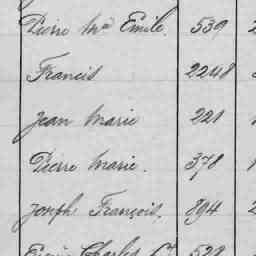 Pierre Mie Emile. 539
Francis 2248
Jean Marie 221
Pierre Marie. 378
Joseph François. 894
Charles 529